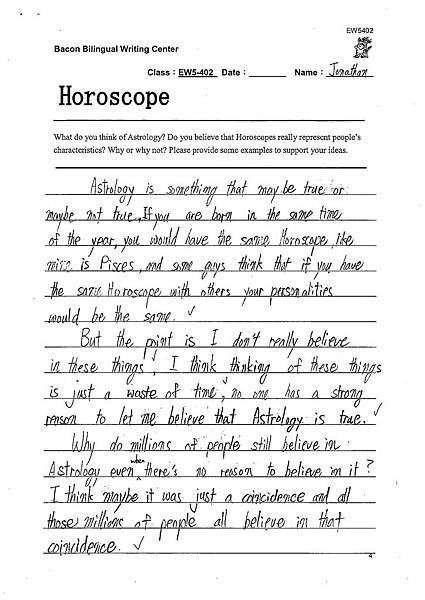 EW5402
Bacon Bilingual Writing Center
Class : EW5-402 Date : ________ Name : Jonathan
Horoscope
What do you think of Astrology? Do you believe that Horoscopes really represent people's
characteristics? Why or why not? Please provide some examples to support your ideas.
Astrology is something that may be true or
maybe not true. If you are born in the same time
of the year, you would have the same Horoscope, like
mine is Pisces, and some guys think that if you have
the same Horoscope with others your personalities
would be the same. ✓
But the point is I don't really believe
in these things, I think thinking of these things
is just a waste of time, no one has a strong
reason to let me believe that Astrology is true. ✓
Why do millions of people still believe in
Astrology even when there's no reason to believe in it?
I think maybe it was just a coincidence and all
those millions of people all believe in that
coincidence. ✓
4